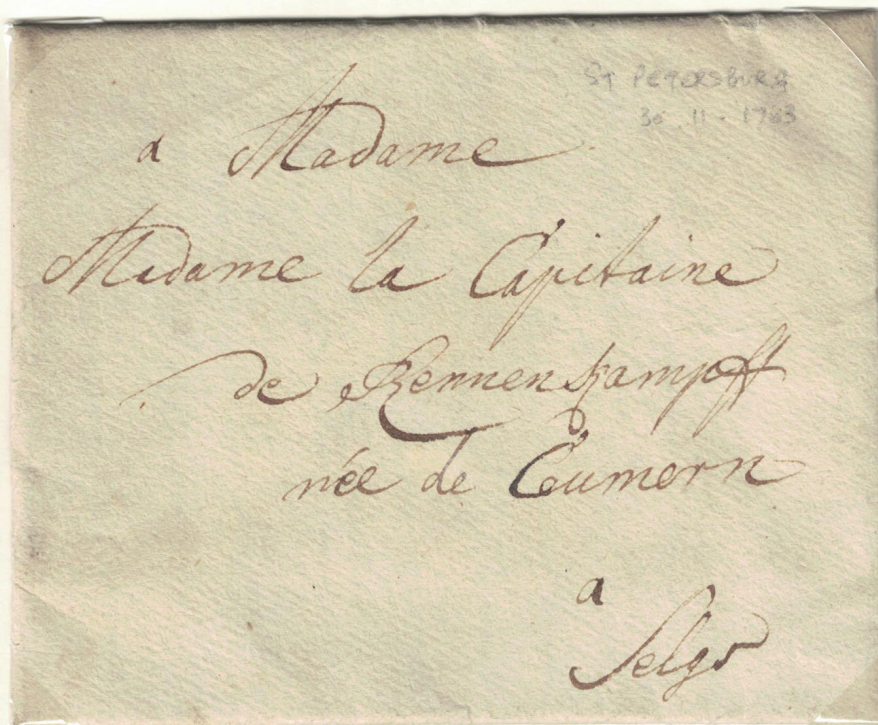 St PETERSBURG
30 . 11 . 1783
a Madame
Madame la Capitaine
de Rennenkampff
née de Cumern
a
Selgs